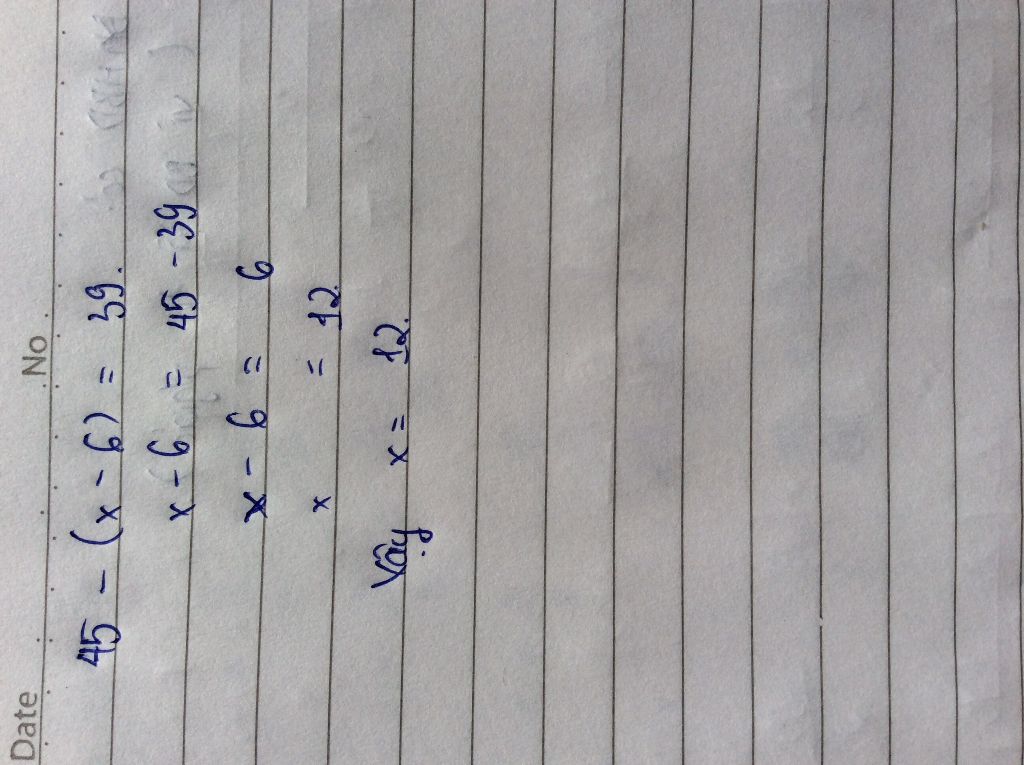 Date No
45 - (x - 6) = 39.
x - 6 = 45 - 39
x - 6 = 6
x = 12
Vậy x = 12.